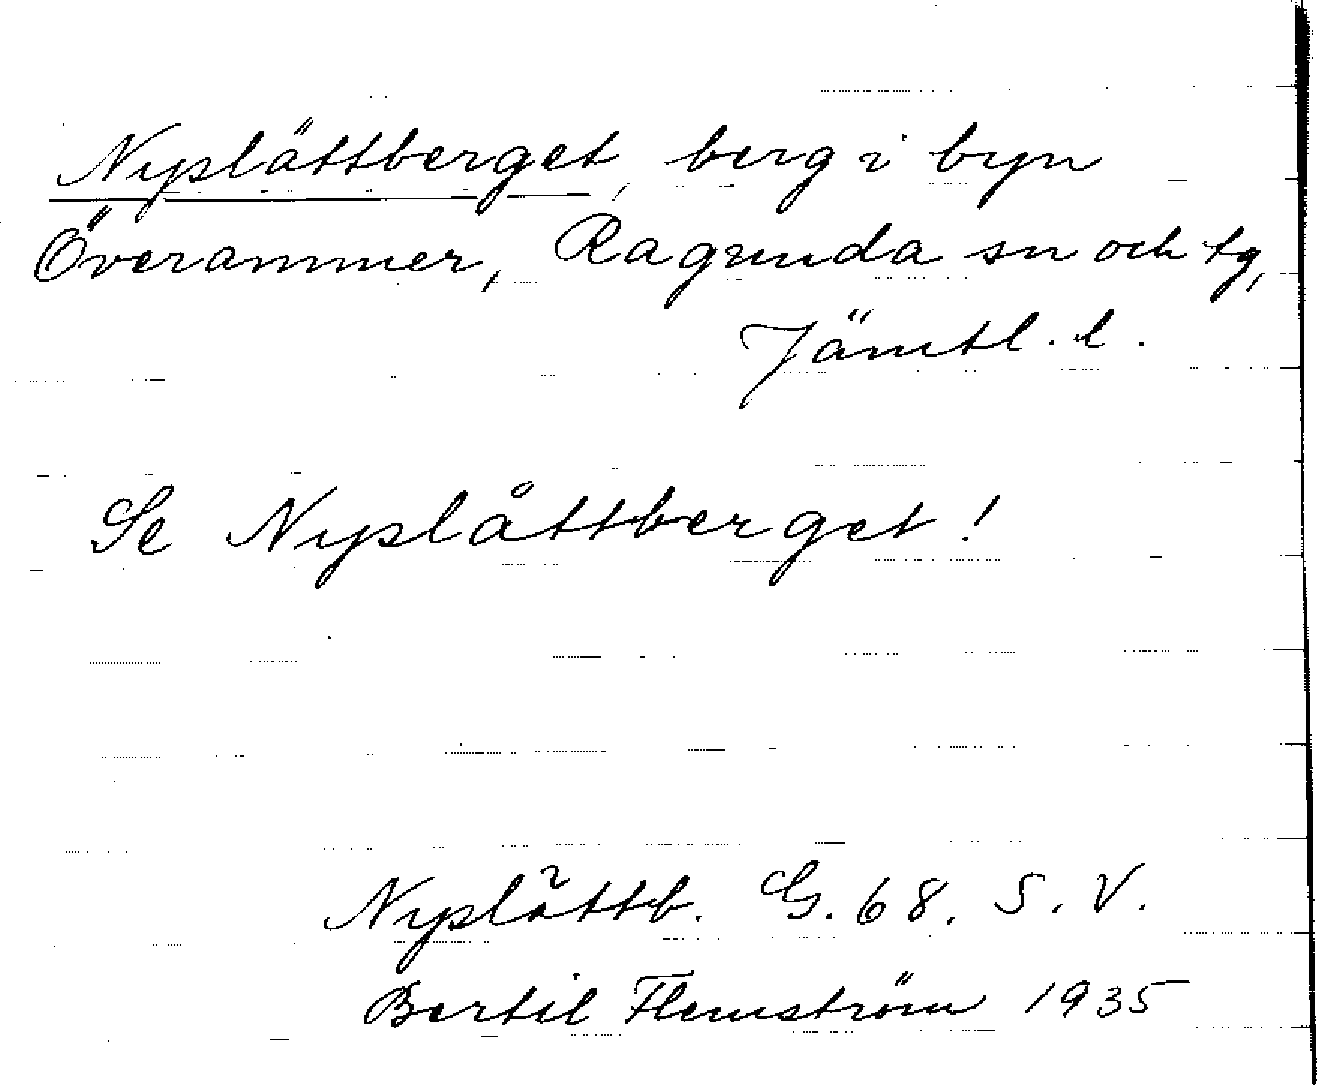 Nyslättberget, berg i byn
Överammer, Ragunda sn och tg,
Jämtl. l.
Se Nyslåttberget!
Nyslåttb. G. 68. S. V.
Bertil Flemström 1935